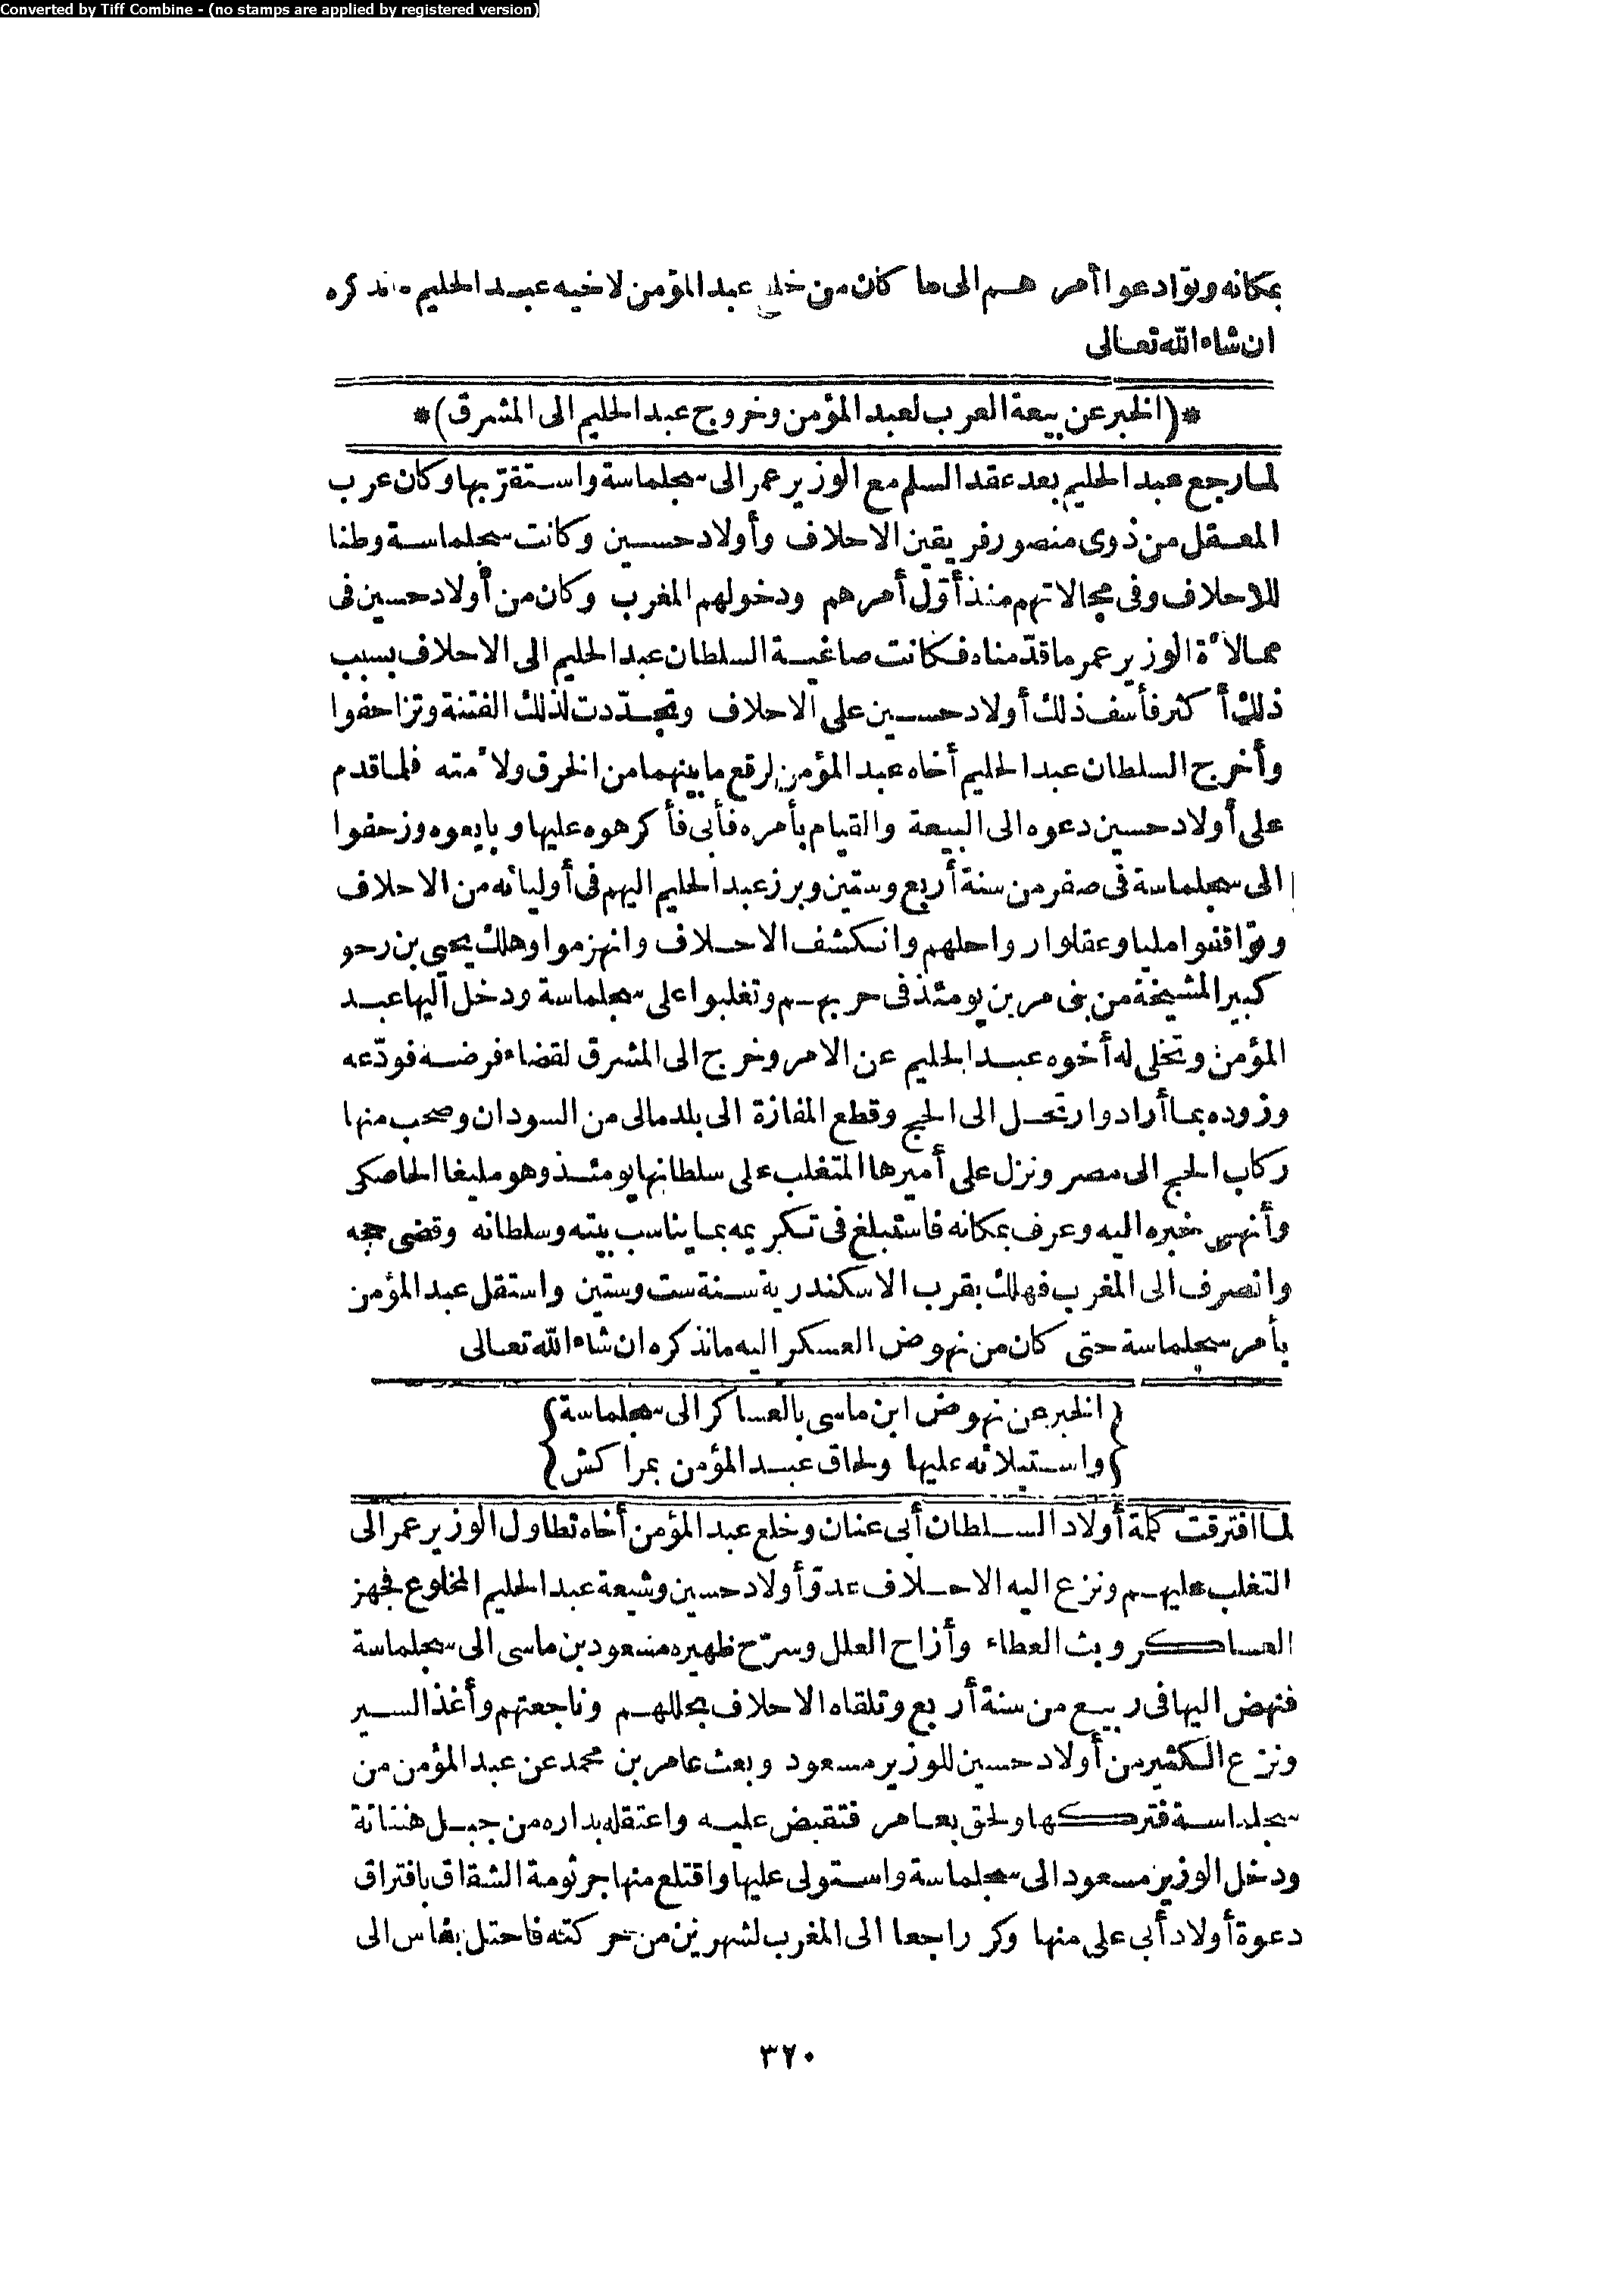 Converted by Tiff Combine - (no stamps are applied by registered version)
بمكانه وتوادعوا أمرهم الى ما كان من خلع عبد المؤمن لاخيه عبد الحليم ما نذكره
ان شاء الله تعالى
*(الخبر عن بيعة العرب لعبد المؤمن وخروج عبد الحليم الى المشرق)*
لما رجع عبد الحليم بعد عقد السلم مع الوزير عمر الى سجلماسة واستقرّ بها وكان عرب
المعقل من ذوى منصور فريقين الاحلاف وأولاد حسين وكانت سجلماسة وطنا
للاحلاف وفى مجالاتهم منذ أوّل أمرهم ودخولهم المغرب وكان من أولاد حسين فى
ممالأة الوزير عمر ما قدّمناه فكانت صاغية السلطان عبد الحليم الى الاحلاف بسبب
ذلك أكثر فأسف ذلك أولاد حسين على الاحلاف وتجدّدت لذلك الفتنة وتزاحفوا
وأخرج السلطان عبد الحليم أخاه عبد المؤمن لرقع ما بينهما من الخرق ولأمته فلما قدم
على أولاد حسين دعوه الى البيعة والقيام بأمره فأبى فأكرهوه عليها وبايعوه وزحفوا
الى سجلماسة فى صفر من سنة أربع وستين وبرز عبد الحليم اليهم فى أوليائه من الاحلاف
وتواقفوا مليا وعقلوا رواحلهم وانكشف الاحلاف وانهزموا وهلك يحيى بن رحو
كبير المشيخة من بنى مرين يومئذ فى حربهم وتغلبوا على سجلماسة ودخل اليها عبد
المؤمن وتخلى له أخوه عبد الحليم عن الامر وخرج الى المشرق لقضاء فرضه فودّعه
وزوده بما أراد وارتحل الى الحج وقطع المفازة الى بلد مالى من السودان وصحب منها
ركاب الحج الى مصر ونزل على أميرها المتغلب على سلطانها يومئذ وهو مليغا الخاصكى
وأنهى خبره اليه وعرف بمكانه فاستبلغ فى تكريمه بما يناسب بيته وسلطانه وقضى حجه
وانصرف الى المغرب فهلك بقرب الاسكندرية سنة ست وستين واستقل عبد المؤمن
بأمر سجلماسة حتى كان من نهوض العسكر اليه ما نذكره ان شاء الله تعالى
{الخبر عن نهوض ابن ماسى بالعساكر الى سجلماسة}
{واستيلائه عليها ولحاق عبد المؤمن بمراكش}
لما افترقت كلمة أولاد السلطان أبى عنان وخلع عبد المؤمن أخاه تطاول الوزير عمر الى
التغلب عليهم ونزع اليه الاحلاف عدوّ أولاد حسين وشيعة عبد الحليم المخلوع فجهز
العساكر وبث العطاء وأزاح العلل وسرّح ظهيره مسعود بن ماسى الى سجلماسة
فنهض اليها فى ربيع من سنة أربع وتلقاه الاحلاف بحللهم وناجعتهم وأغذ السير
ونزع الكثير من أولاد حسين للوزير مسعود وبعث عامر بن محمد عن عبد المؤمن من
سجلماسة فتركها ولحق بعامر فتقبض عليه واعتقله بداره من جبل هنتاتة
ودخل الوزير مسعود الى سجلماسة واستولى عليها واقتلع منها جرثومة الشقاق بافتراق
دعوة أولاد أبى على منها وكر راجعا الى المغرب لشهرين من حركته فاحتل بفاس الى
٣٢٠